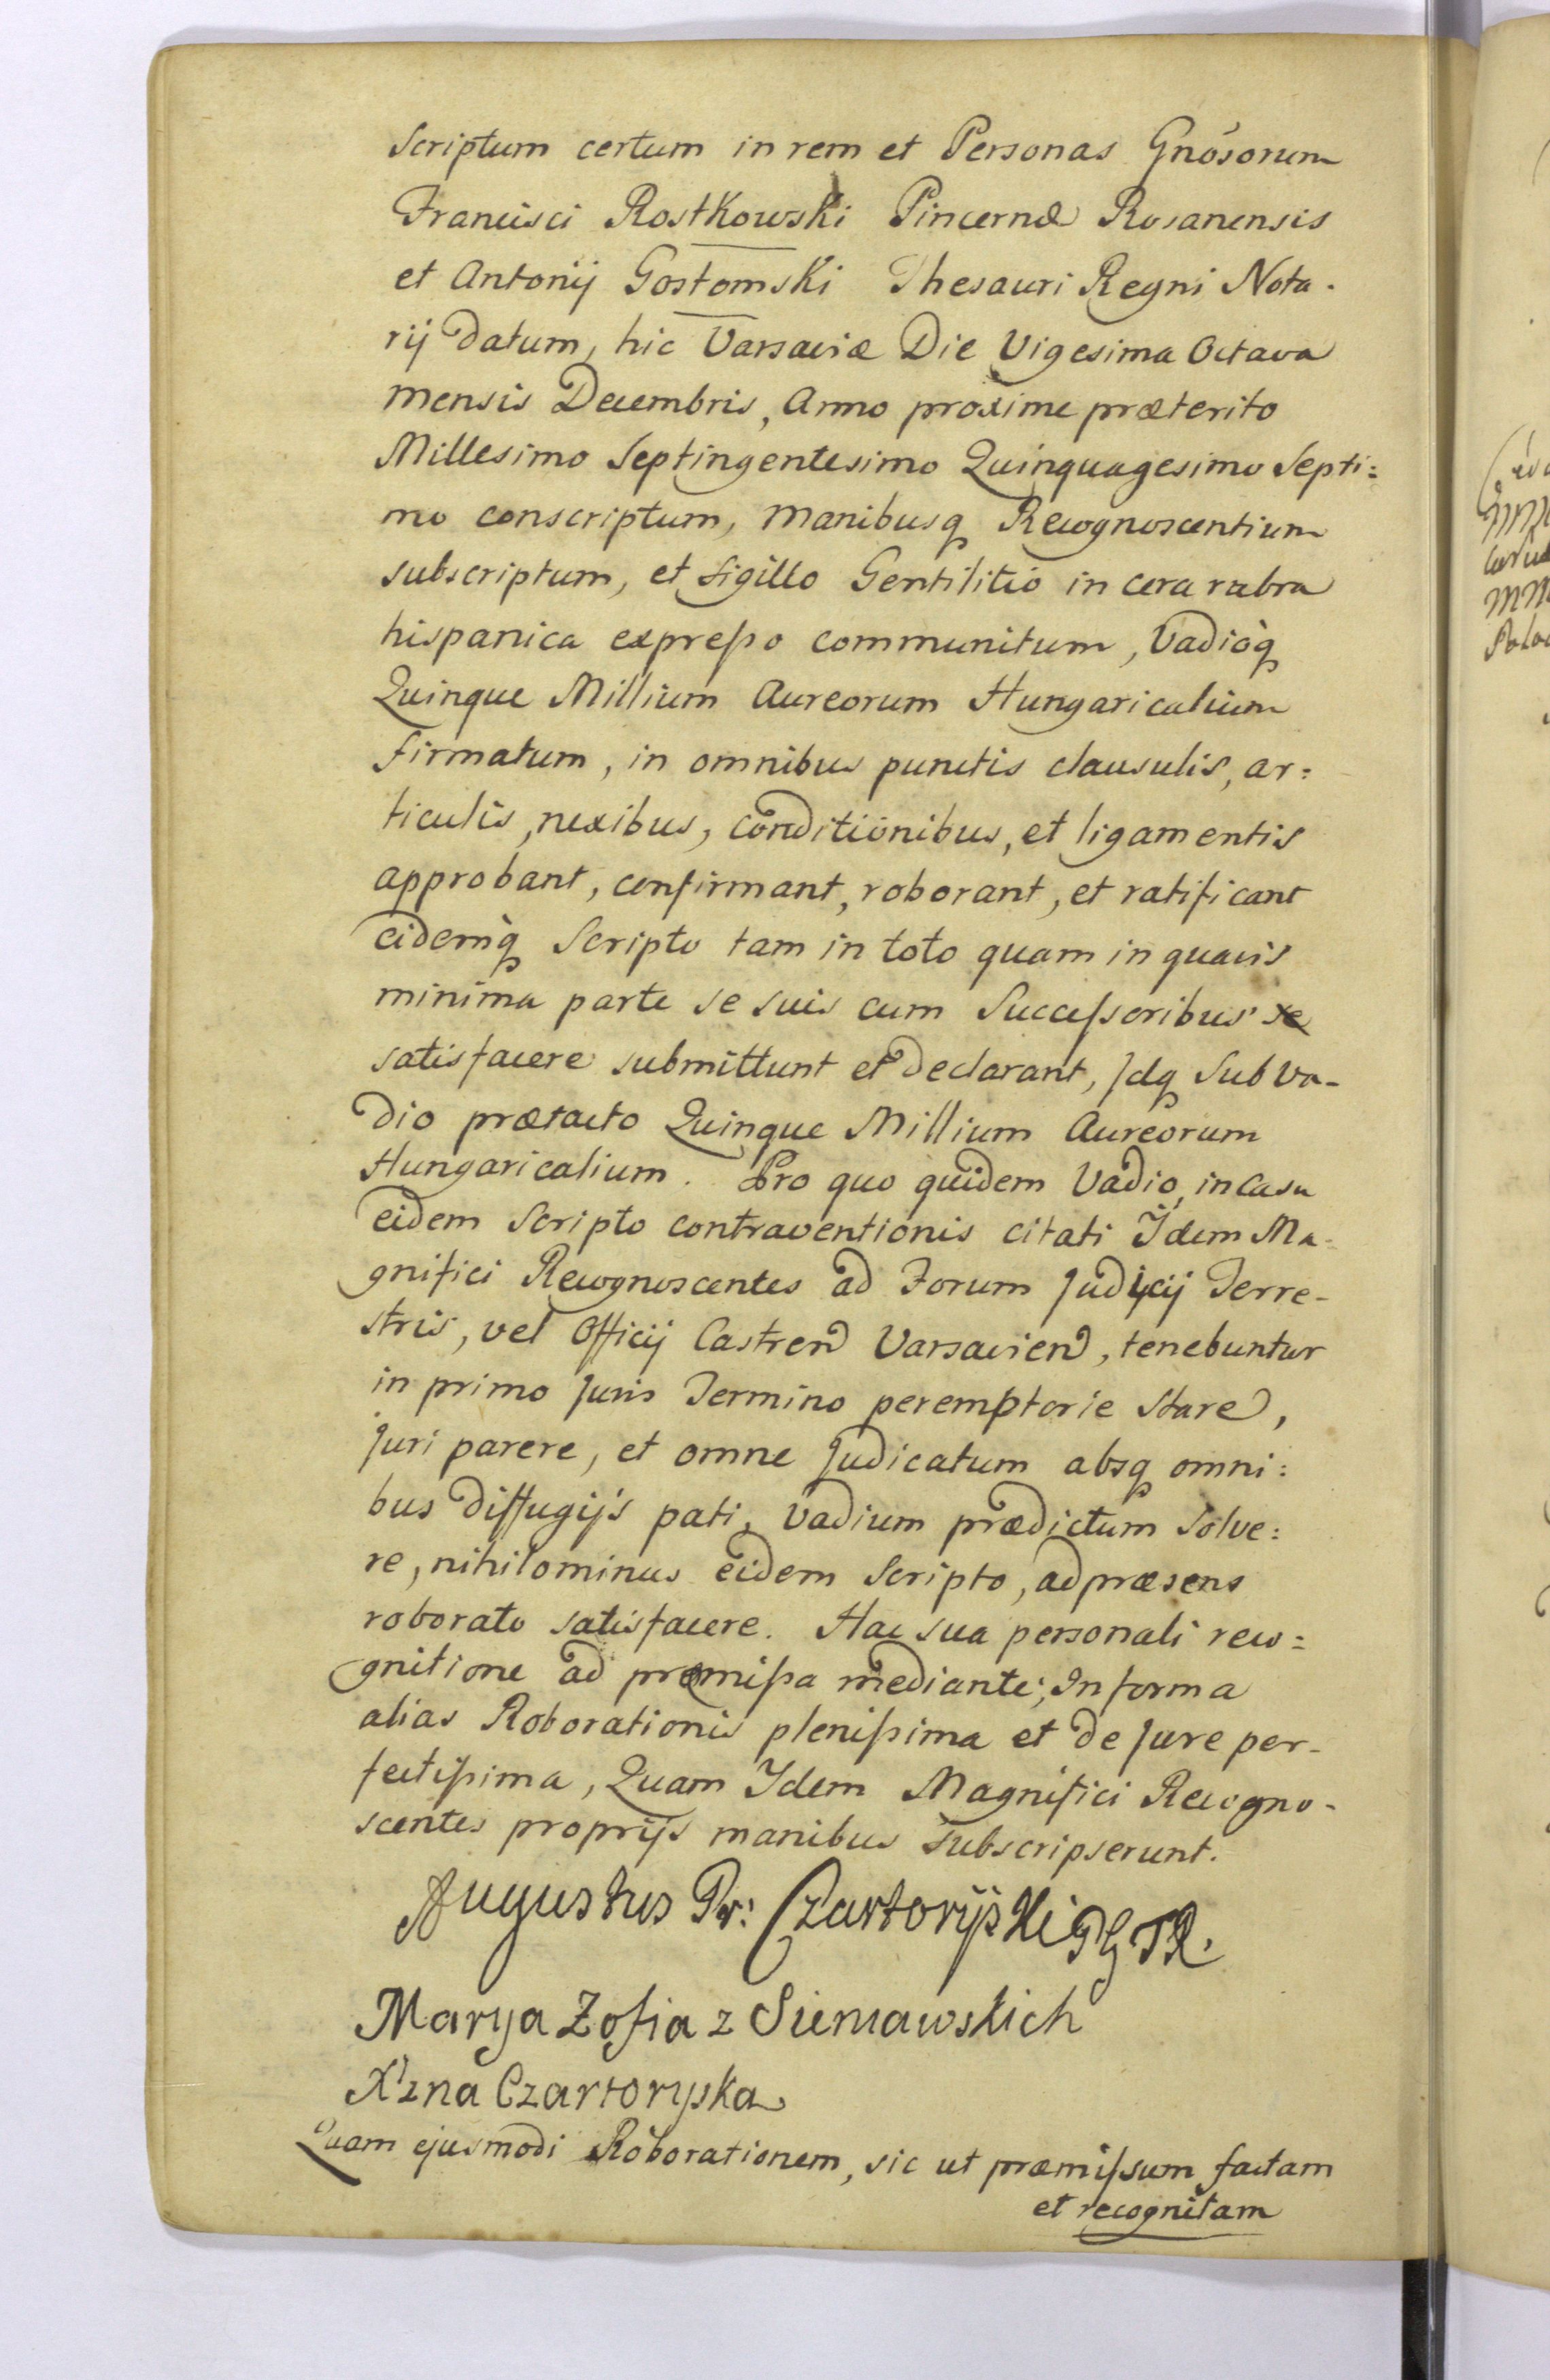 Scriptum certum in rem et Personas Gnosorum
Francisci Rostkowski Pincernæ Rosanensis
et Antonij Gostomski Thesauri Regni Nota-
rij datum, hic Varsaviæ Die Vigesima Octava
mensis Decembris, Anno proxime præterito
Millesimo Septingentesimo Quinquagesimo Septi=
mo conscriptum, manibusq Recognoscentium
subscriptum, et sigillo Gentilitio in cera rubra
hispanica expresso communitum, Vadioq
Quinque Millium Aureorum Hungaricalium
firmatum, in omnibus punctis clausulis, ar=
ticulis, nexibus, conditionibus, et ligamentis
approbant, confirmant, roborant, et ratificant
eidemq Scripto tam in toto quam in quavis
minima parte se suis cum Successoribus se
satisfacere submittunt et declarant, Idq Sub Va-
dio prætacto Quinque Millium Aureorum
Hungaricalium. Pro quo quidem Vadio, in casu
eidem Scripto contraventionis citati Idem Ma=
gnifici Recognoscentes ad Forum Judicij Terre-
stris, vel Officij Castren Varsavien, tenebuntur
in primo Juris Termino peremptorie stare,
Juri parere, et omne Judicatum absq omni=
bus diffugijs pati, Vadium prædictum solve=
re, nihilominus eidem Scripto, ad præsens
roborato satisfacere. Hac sua personali reco=
gnitione ad præmissa mediante; In forma
alias Roborationis plenissima et de Jure per-
fectissima, Quam Idem Magnifici Recogno-
scentes proprijs manibus subscripserunt.
Augustus Pr: Czartoryski
Marya Zofia z Sieniawskich
X'zna Czartoryska
Quam ejusmodi Roborationem, sic ut præmissum factam
et recognitam